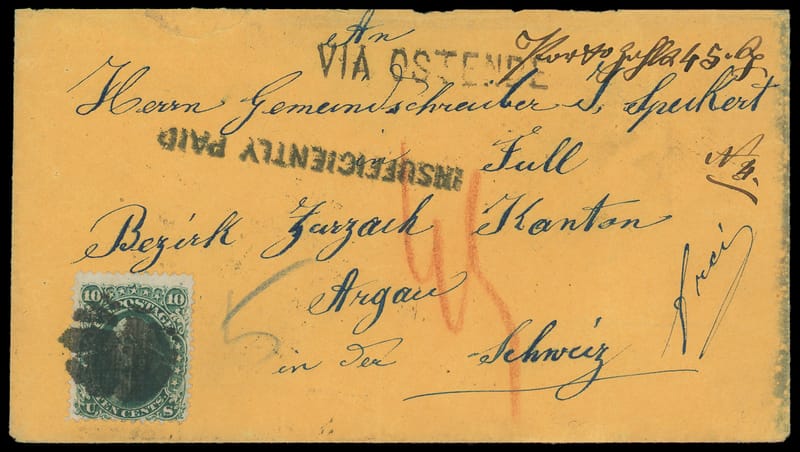 An
VIA OSTENDE
Porto zahlt 45 Cp
Herrn Gemeindschreiber J. Speikert
INSUFFICIENTLY PAID
in Full
N 4.
Bezirk Zurzach Kanton
45
5
Argau
frei
in der Schweiz
10 10
POSTAGE
U TEN CENTS S